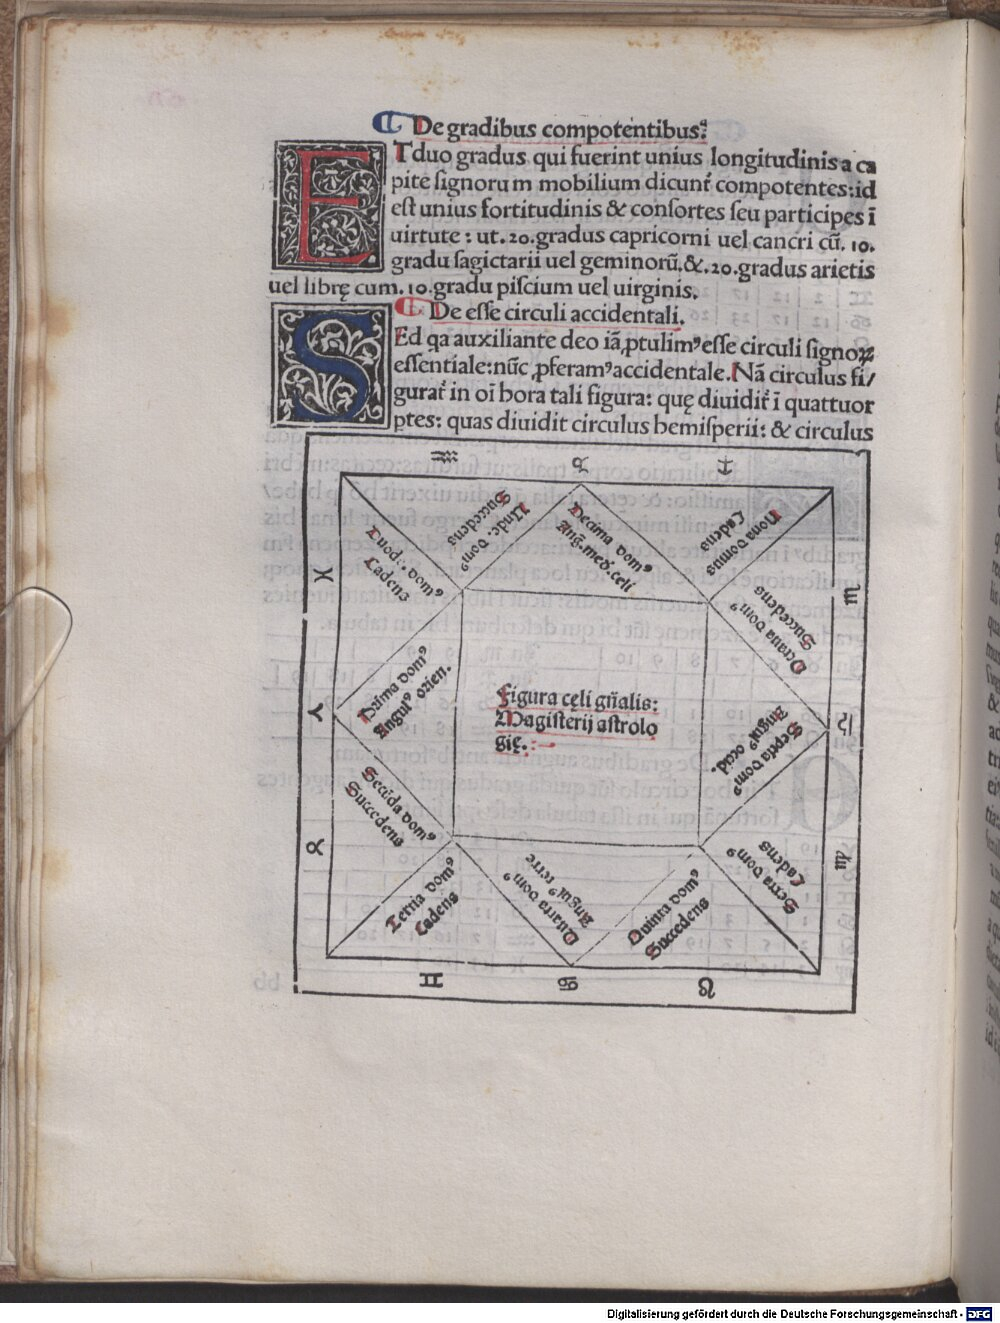 De gradibus compotentibus.
ET duo gradus qui fuerint unius longitudinis a ca
pite signorum mobilium dicunt᷑ compotentes: id
est unius fortitudinis & consortes seu participes ī
uirtute: ut .20. gradus capricorni uel cancri cū .10.
gradu sagictarii uel geminorū. &. 20. gradus arietis
uel librę cum .10. gradu piscium uel uirginis.
De esse circuli accidentali.
SEd qa auxiliante deo iā ꝓtulimꝰ esse circuli signoꝝ
essentiale: nūc ꝓferamꝰ accidentale. Nā circulus fi/
gurat᷑ in oī hora tali figura: quę diuidit᷑ ī quattuor
ptes: quas diuidit circulus hemisperii: & circulus
♒ ♑ ♐
Unde. domꝰ
Succedens
Decima domꝰ
Ang. med. celi
Nona domus
Cadens
Duode. domꝰ
Cadens
Octaua domꝰ
Succedens
♓ ♏
Prima domꝰ
Angulꝰ orien.
Figura cęli gn̄alis:
Magisterij astrolo
gię.
Septīa domꝰ
Angulꝰ occid.
♈ ♎
Secūda domꝰ
Succedens
Sexta domꝰ
Cadens
♉ ♍
Tertia domꝰ
Cadens
Quarta domꝰ
Angulꝰ terre
Quinta domꝰ
Succedens
♊ ♋ ♌
Digitalisierung gefördert durch die Deutsche Forschungsgemeinschaft - DFG